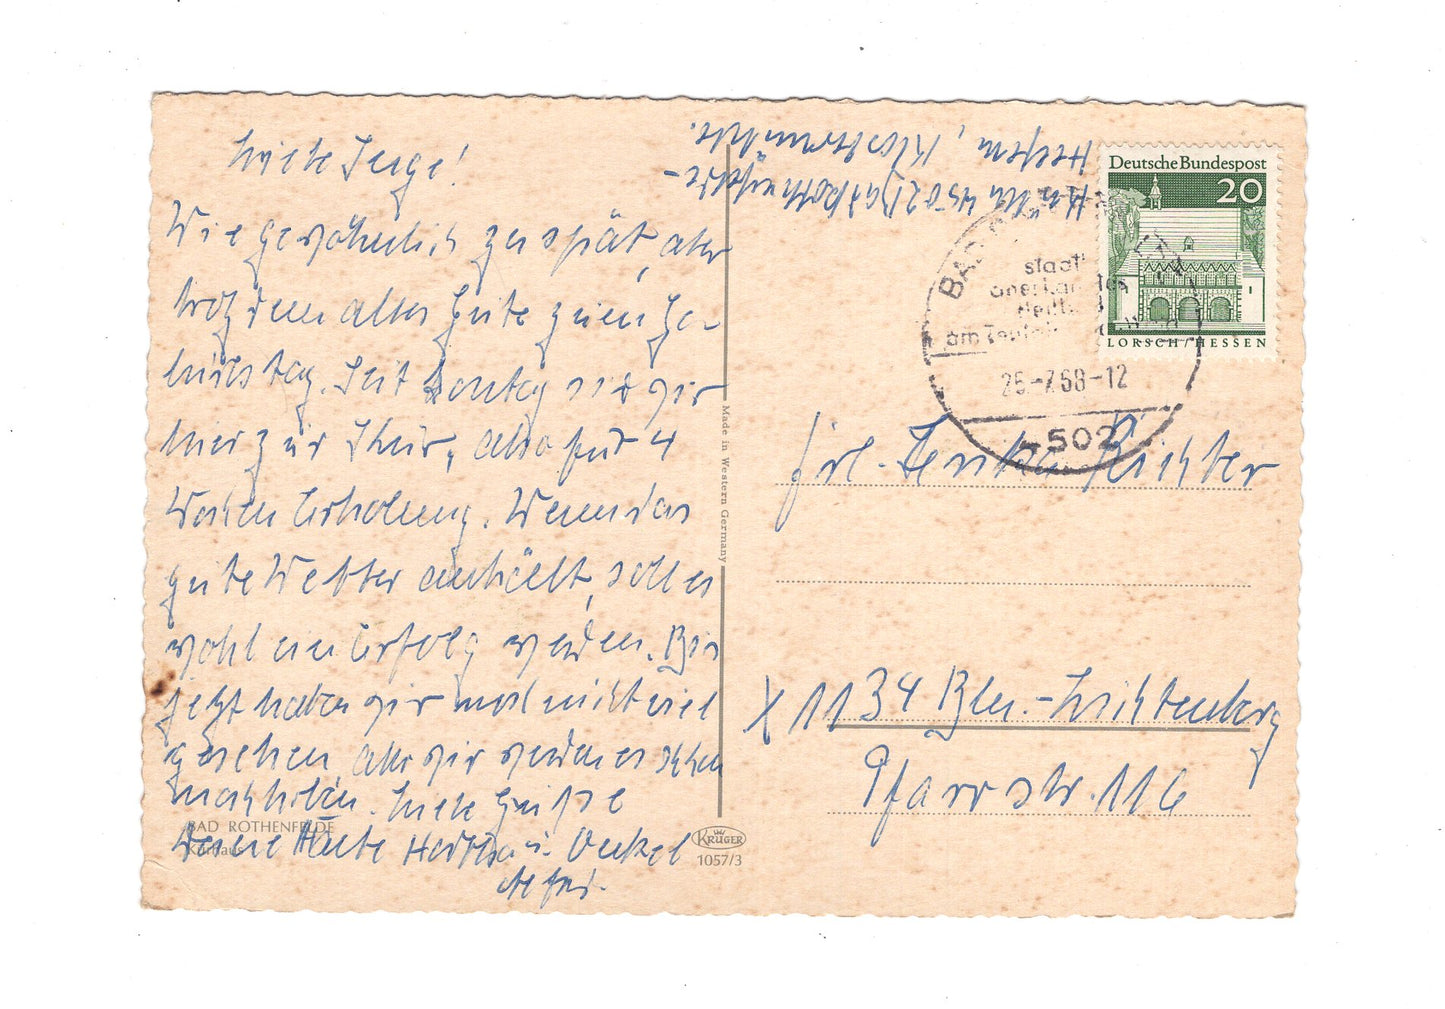 Liebe Inge!
Wie gewöhnlich zu spät, aber
trotzdem alles Gute zum Ge-
burtstag. Seit Montag sind wir
hier zur Kur, also für 4
Wochen Erholung. Wenn das
gute Wetter anhält, soll es
wohl ein Erfolg werden. Bis
jetzt haben wir noch nicht viel
gesehen, aber wir werden es schon
nachholen. Liebe Grüße
Deine Tante Hertha u. Onkel
BAD ROTHENFELDE
Kurhaus
Made in Western Germany
KRÜGER
1057/3
4502 Bad Rothenfelde-
Helfern, Klostermühle.
Deutsche Bundespost
20
LORSCH/HESSEN
BAD
staatl
anerkanntes
Heilbad
am Teutoburger Wald
25-7.68-12
502
Frl. Richter
X 1134 Bln.-Lichtenberg
Pfarrstr. 116